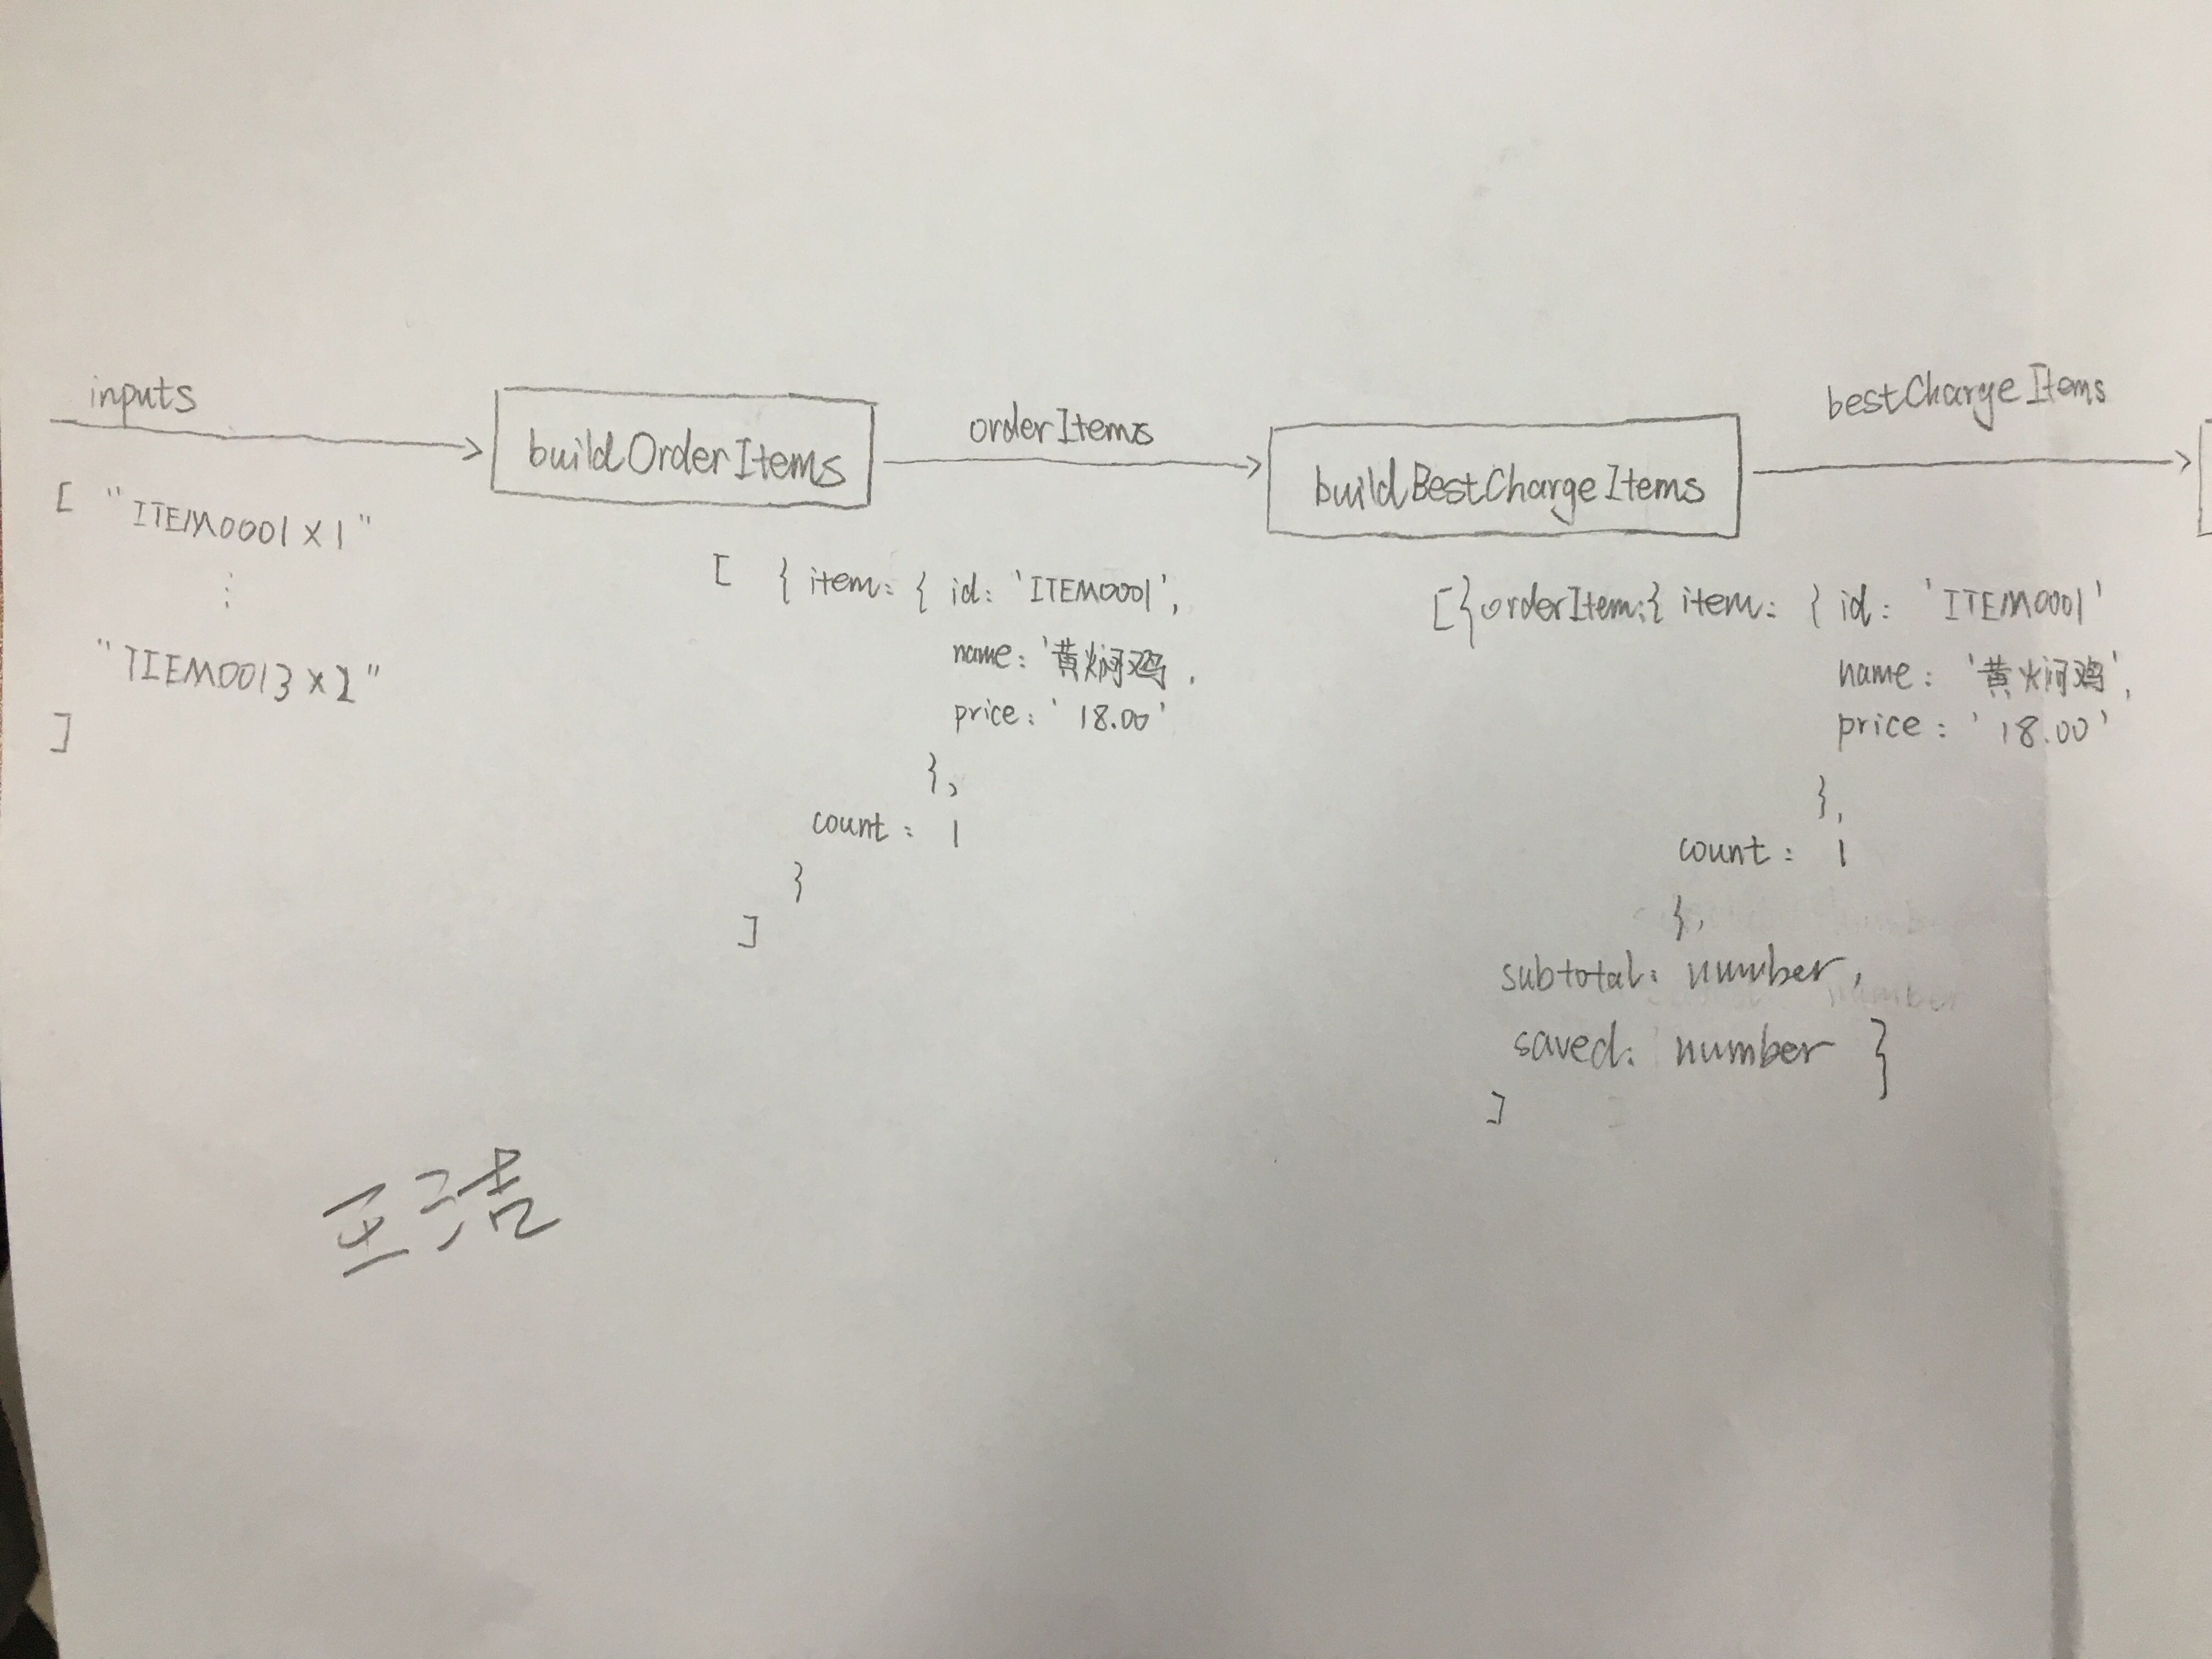 inputs
[ "ITEM0001 x 1"
⋮
"ITEM0013 x 2"
]
buildOrderItems
orderItems
[ { item: { id: 'ITEM0001',
name: '黄焖鸡,
price: '18.00'
},
count: 1
}
]
buildBestChargeItems
bestChargeItems
[{orderItem:{ item: { id: 'ITEM0001'
name: '黄焖鸡',
price: '18.00',
},
count: 1
},
subtotal: number,
saved: number }
]